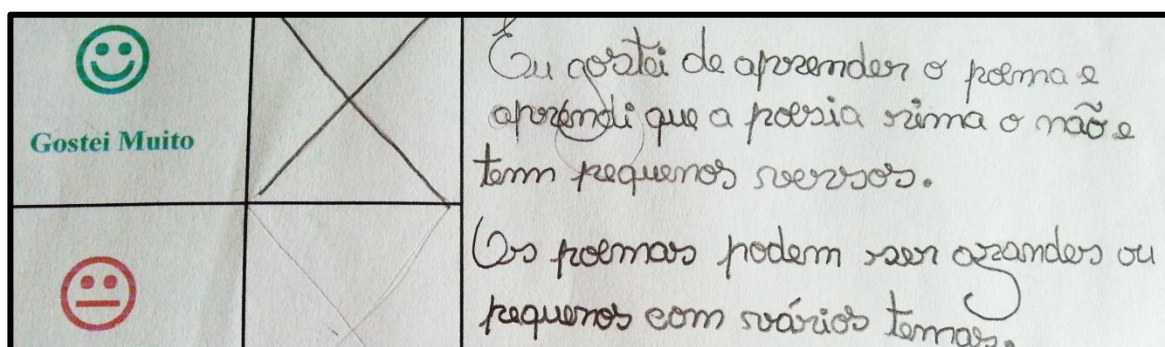 Gostei Muito
Eu gostei de aprender o poema e
aprendi que a poesia rima o não e
temm pequenos versos.
Os poemas podem ser grandes ou
pequenos com vários temas.